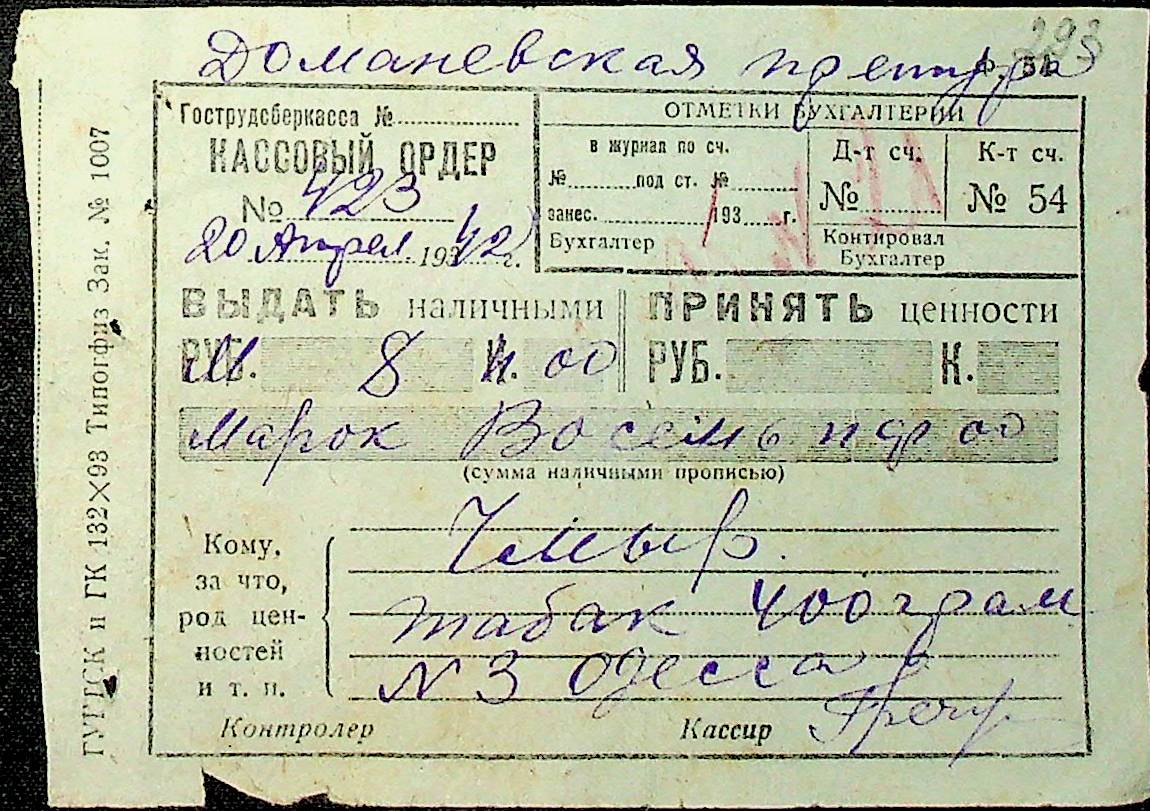 293
Доманевская претура
Ф. № 51
Гострудсберкасса №
КАССОВЫЙ ОРДЕР
№ 423
20 Апрел 1942 г.
ОТМЕТКИ БУХГАЛТЕРИИ
в журнал по сч.
№ под ст. №
занес. 193 г.
Бухгалтер
Д-т сч.
№
К-т сч.
№ 54
Контировал
Бухгалтер
ВЫДАТЬ наличными
РУБ. М. 8 К. 00
ПРИНЯТЬ ценности
РУБ. К.
Марок Восемь пф 00
(сумма наличными прописью)
Кому,
за что,
род цен-
ностей
и т. п.
Чмыр.
табак 400 грам
N 3 Одесса
Контролер
Кассир
ГУГТСК и ГК 132×93 Типогфиз Зак. № 1007